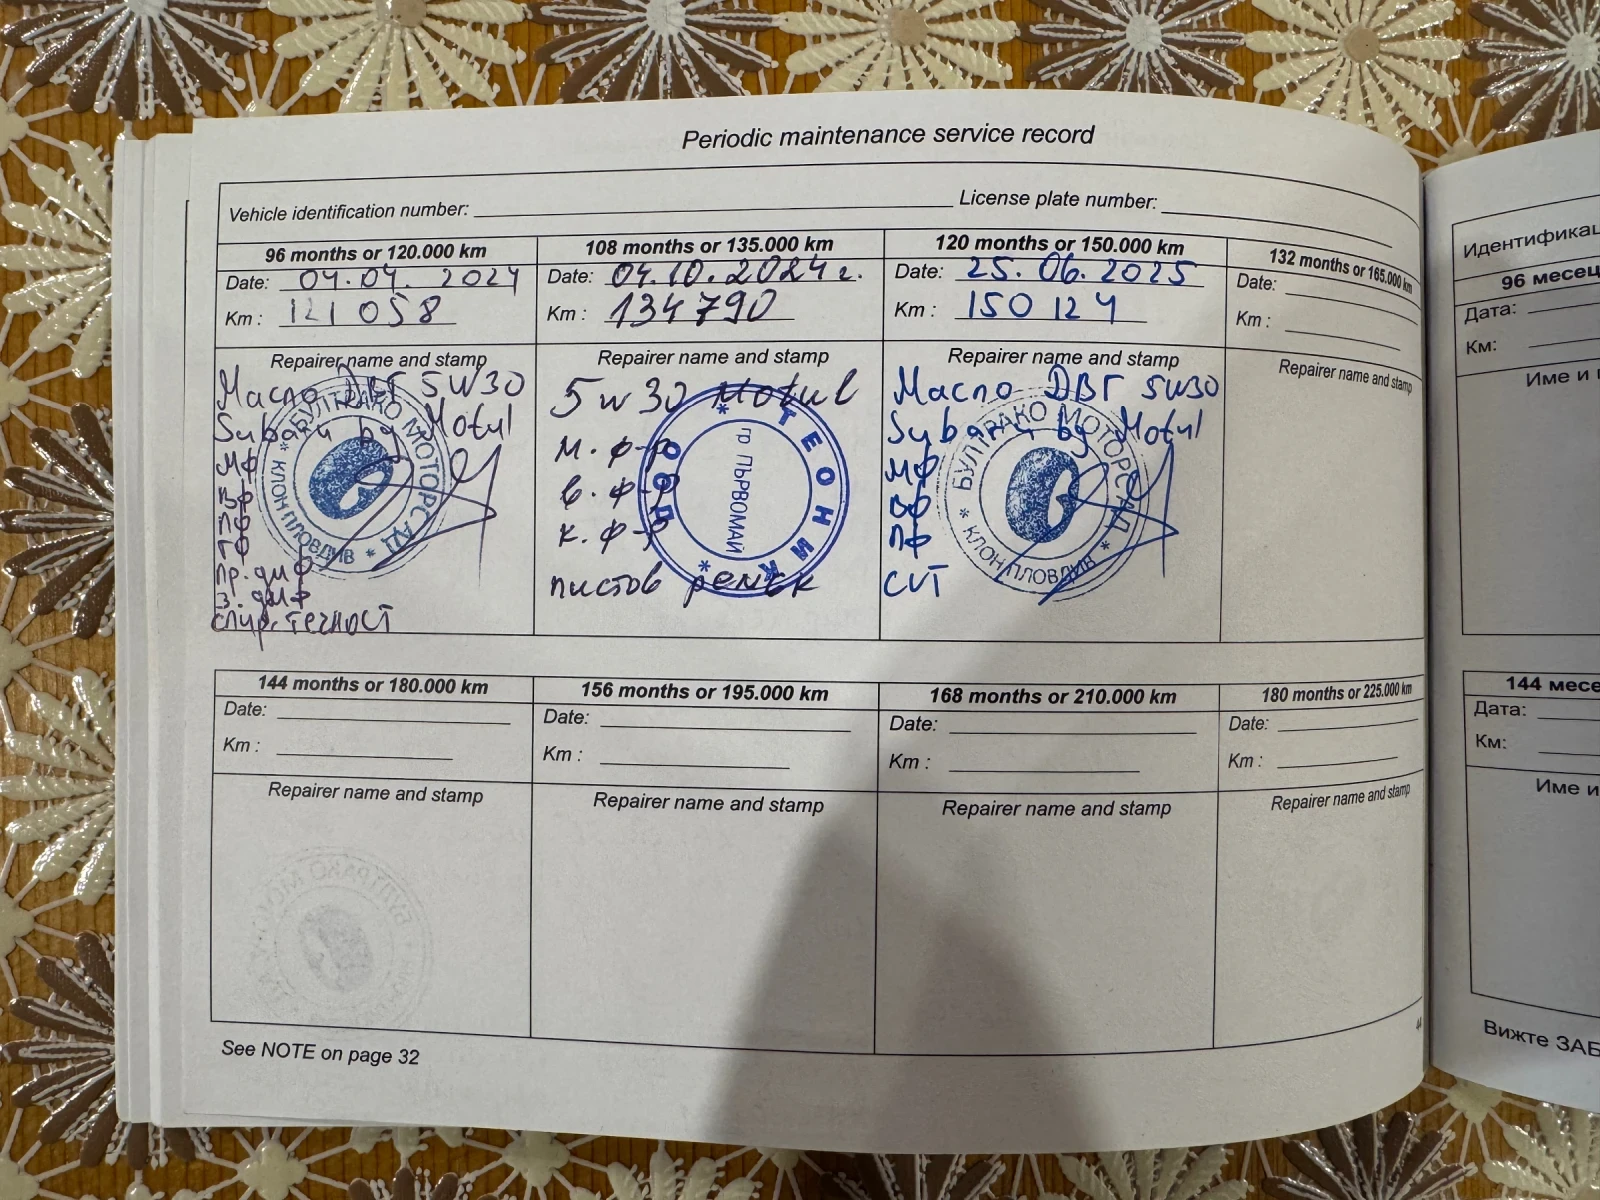 Periodic maintenance service record
Vehicle identification number:
License plate number:
96 months or 120.000 km
Date: 04.04. 2024
Km : 121 058
Repairer name and stamp
Масло ДВГ 5W30
Subaru by Motul
МФ
ВФ
ПФ
ГФ
Пр. диф
З. диф
спир. течност
БУЛТРАКО МОТОРСАД
* КЛОН ПЛОВДИВ *
108 months or 135.000 km
Date: 04.10.2024 г.
Km : 134790
Repairer name and stamp
5w30 Motul
м. ф-р
в. ф-р
к. ф-р
пистов ремък
* ТЕОНИК * ООД
гр. ПЪРВОМАЙ
120 months or 150.000 km
Date: 25. 06. 2025
Km : 150 124
Repairer name and stamp
Масло ДВГ 5W30
Subaru by Motul
МФ
ВФ
ПФ
CVT
БУЛТРАКО МОТОРСАД
* КЛОН ПЛОВДИВ *
132 months or 165.000 km
Date:
Km :
Repairer name and stamp
144 months or 180.000 km
Date:
Km :
Repairer name and stamp
156 months or 195.000 km
Date:
Km :
Repairer name and stamp
168 months or 210.000 km
Date:
Km :
Repairer name and stamp
180 months or 225.000 km
Date:
Km :
Repairer name and stamp
See NOTE on page 32
44
Идентификац
96 месец
Дата:
Км:
Име и
144 месе
Дата:
Км:
Име и
Вижте ЗАБ